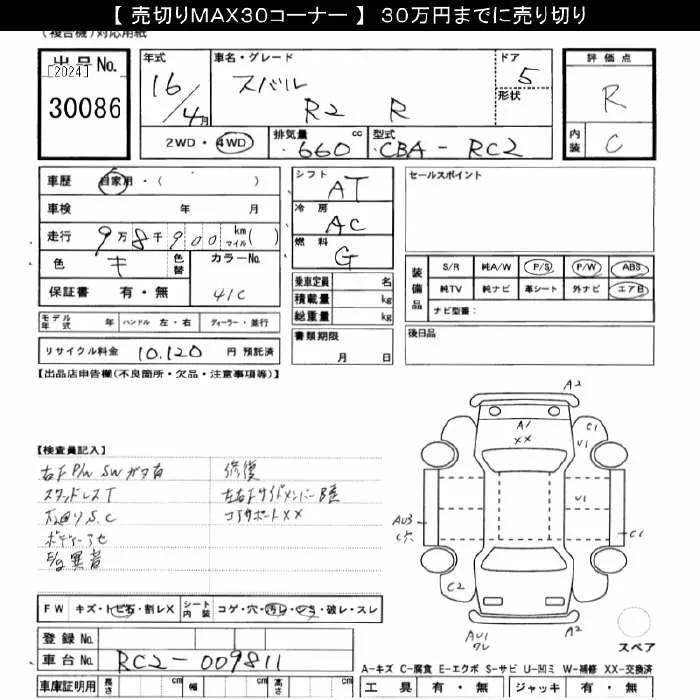 【 売切りMAX30コーナー 】 30万円までに売り切り
(複合機)対応用紙
出品No.
[2024]
30086
年式
16/4月
車名・グレード
スバル
R2 R
ドア
5
形状
評価点
R
内装
C
2WD・4WD
排気量
660
cc
型式
CBA-RC2
車歴 自家用・( )
車検 年 月
走行 9万8千900 km マイル( )
色 キ 色替
カラーNo.
41C
保証書 有・無
シフト
AT
冷房
AC
燃料
G
乗車定員 名
積載量 kg
総重量 kg
書類期限
月 日
セールスポイント
装備品
S/R 純A/W P/S P/W ABS
純TV 純ナビ 革シート 外ナビ エアB
ナビ型番:
後日品
モデル年式 年 ハンドル 左・右 ディーラー・並行
リサイクル料金 10.120 円 預託済
【出品店申告欄(不良箇所・欠品・注意事項等)】
【検査員記入】
右F P/W SW ガタ有
スタッドレスT
下廻りS.C
ボディーアセ
E/g異音
修復
左右Fサイドメンバー
コアサポートXX
A2
A1
XX
C1
U1
U1
AU3
C穴
C1
C2
AU1
ワレ
A2
スペア
FW キズ・トビ石・割レX
シート内装 コゲ・穴・汚レ・シミ・破レ・スレ
登録No.
車台No. RC2-009811
車庫証明用 長さ cm 幅 cm 高さ cm
A-キズ C-腐食 E-エクボ S-サビ U-凹ミ W-補修 XX-交換済
工具 有・無 ジャッキ 有・無